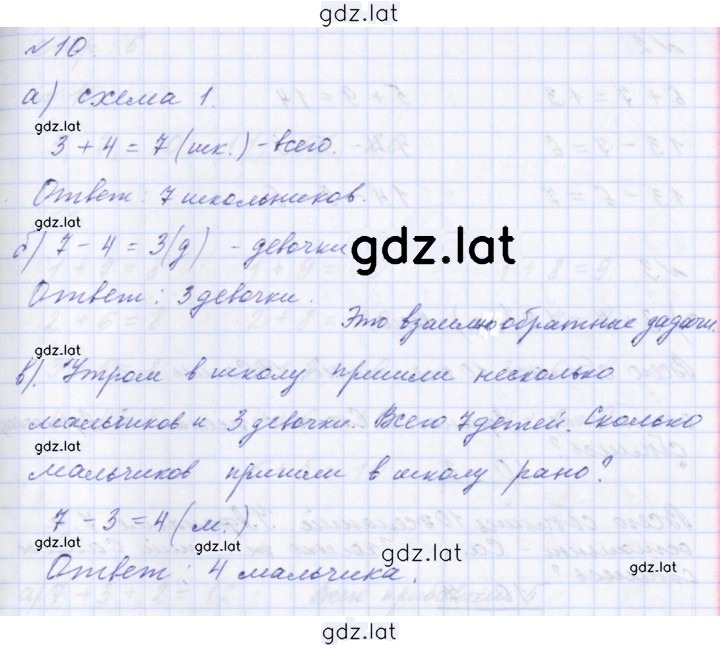 gdz.lat
№10.
а) схема 1.
gdz.lat
3 + 4 = 7 (шк.) - всего.
Ответ: 7 школьников.
gdz.lat
б) 7 - 4 = 3(д) - девочки
gdz.lat
Ответ: 3 девочки.
Это взаимнообратные задачи.
gdz.lat
в). Утром в школу пришли несколько
мальчиков и 3 девочки. Всего 7 детей. Сколько
gdz.lat
мальчиков пришли в школу рано?
7 - 3 = 4 (м.)
gdz.lat
gdz.lat
Ответ: 4 мальчика.
gdz.lat
gdz.lat